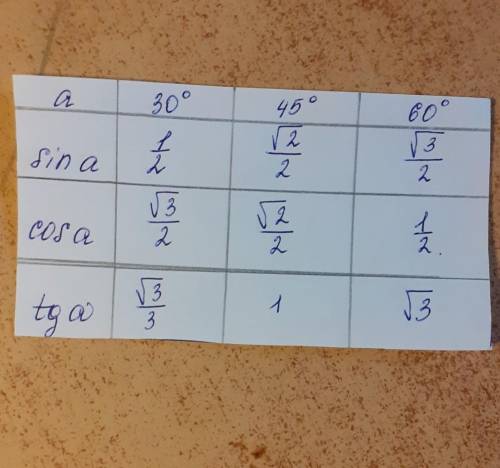 a 30° 45° 60°
sin a 1/2 √2/2 √3/2
cos a √3/2 √2/2 1/2.
tg a √3/3 1 √3